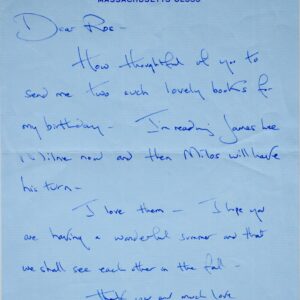 MASSACHUSETTS 02060
Dear Roe -
How thoughtful of you to
send me two such lovely books for
my birthday - I'm reading James Lee
Milne now and then Milos will have
his turn -
I love them - I hope you
are having a wonderful summer and that
we shall see each other in the fall -
thank you and much love